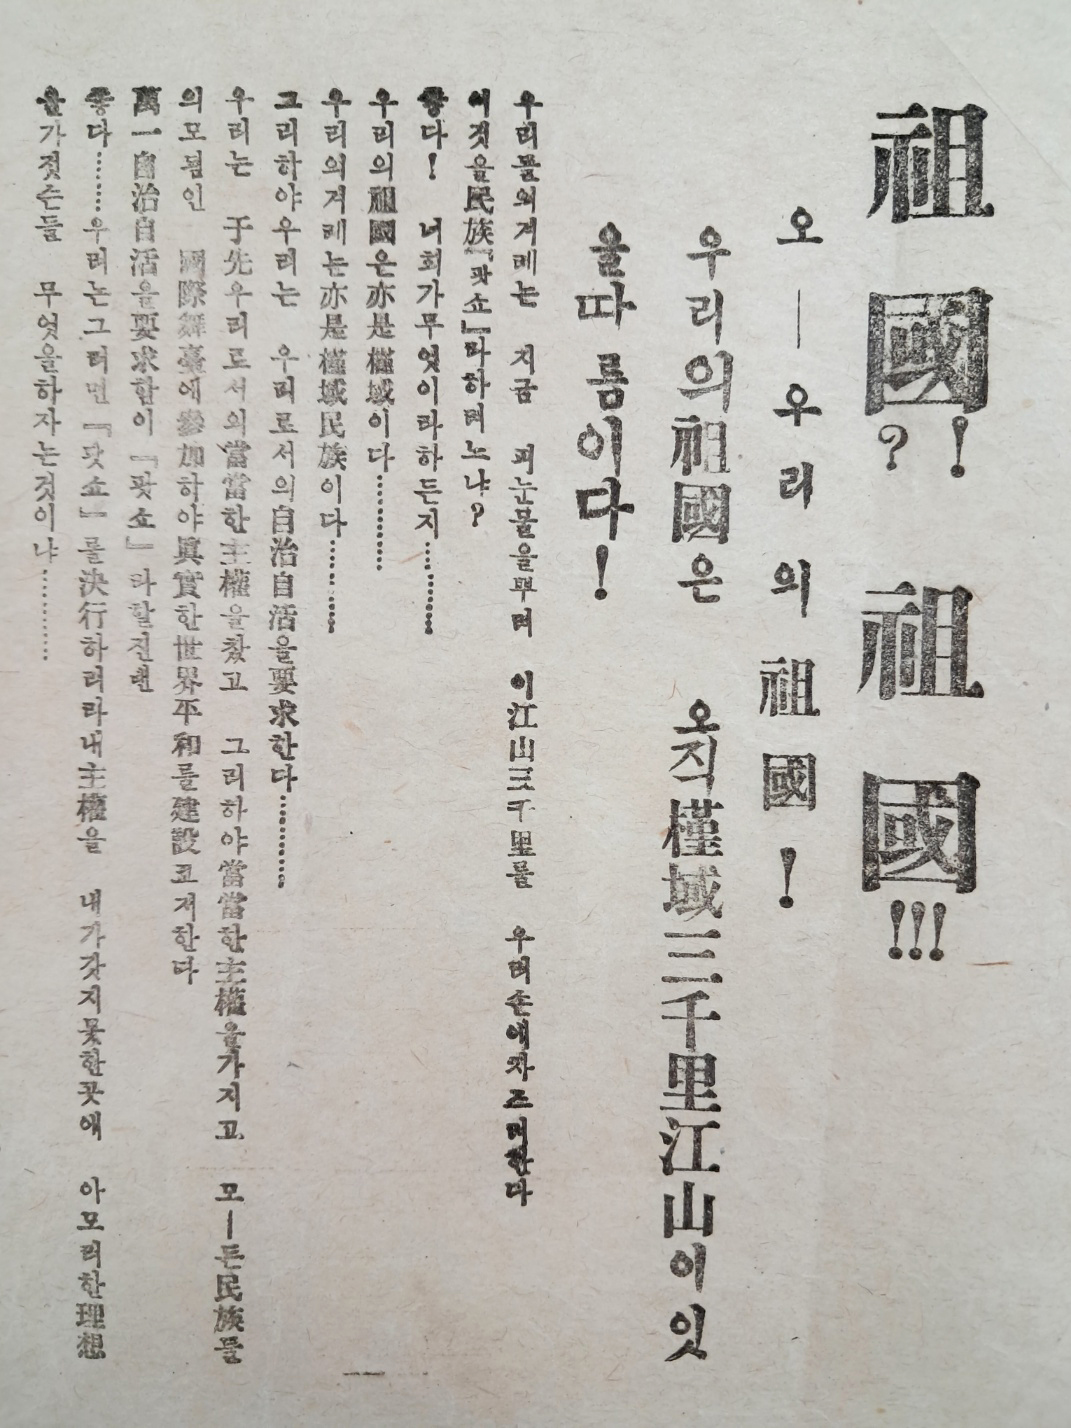 祖國?! 祖國!!!
오—우리의祖國!
우리의祖國은 오직槿域三千里江山이잇
을따름이다!
우리들의겨레는 지금 피눈물을뿌려 이江山三千里를 우리손에차즈려한다
이것을民族『팟쇼』라하려노냐?
좋다! 너희가무엇이라하든지…………
우리의祖國은亦是槿域이다…………
우리의겨레는亦是槿域民族이다…………
그리하야우리는 우리로서의自治自活을要求한다…………
우리는 于先우리로서의當當한主權을찾고 그리하야當當한主權을가지고 모—든民族들
의모됨인 國際舞臺에參加하야眞實한世界平和를建設코저한다
萬一自治自活을要求함이『팟쇼』라할진댄
좋다………우리는그러면『팟쇼』를決行하리라내主權을 내가갖지못한곳에 아모러한理想
을가젓슨들 무엇을하자는것이냐…………